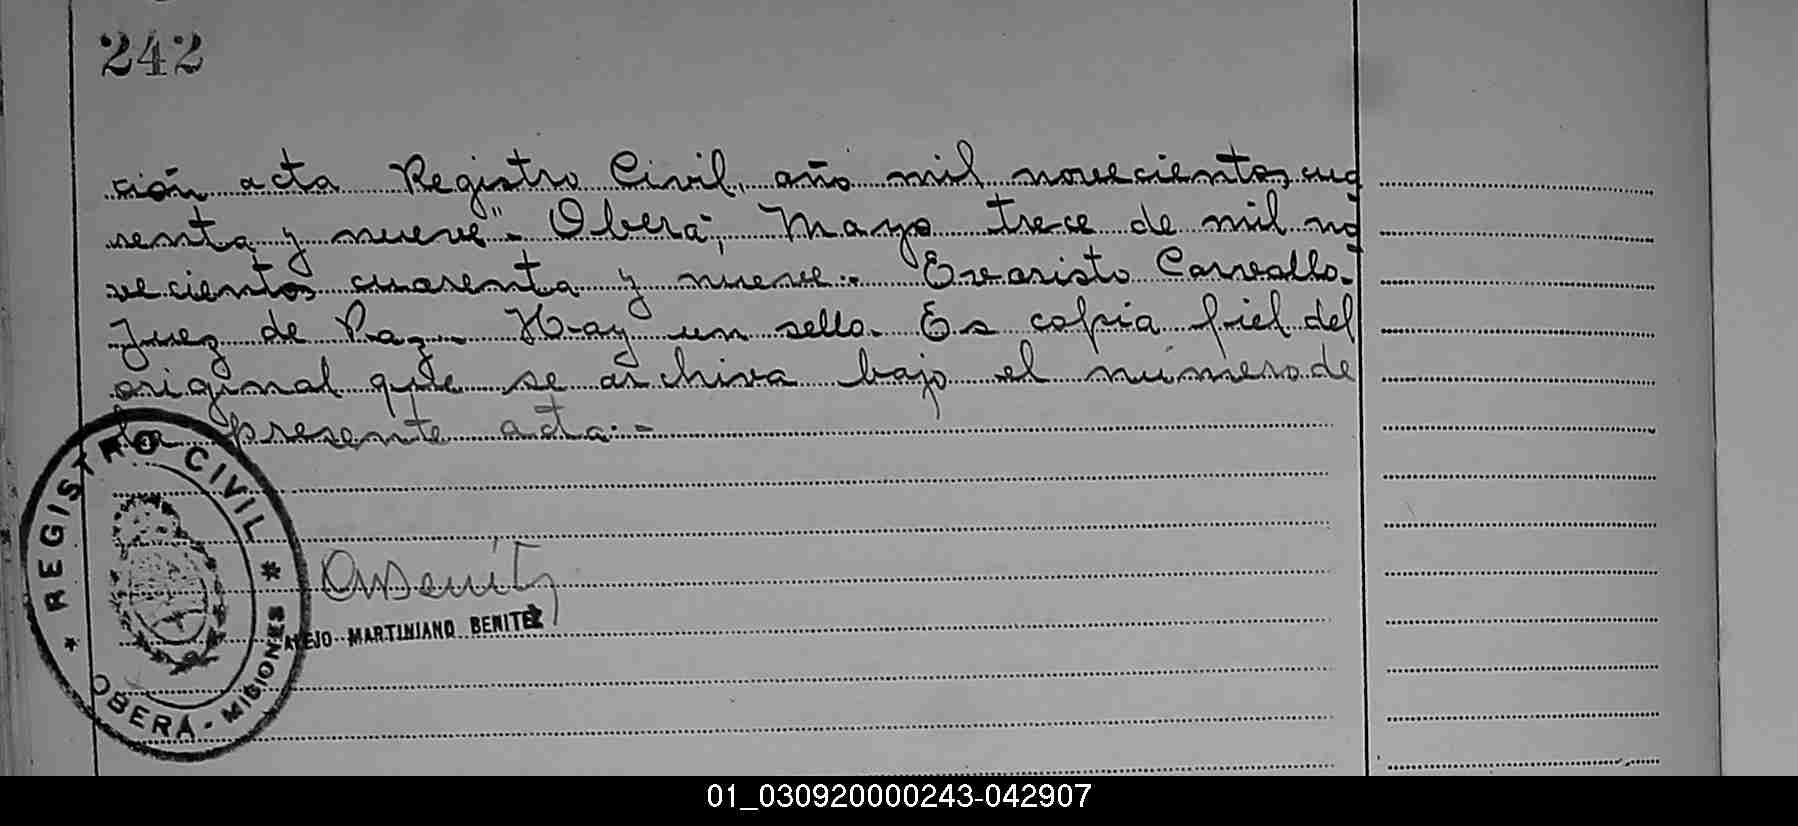 242
ción acta Registro Civil, año mil novecientos cua
renta y nueve".- Oberá, Mayo trece de mil no
vecientos cuarenta y nueve.- Evaristo Carvallo.-
Juez de Paz.- Hay un sello. Es copia fiel del
original que se archiva bajo el número de
la presente acta.-
REGISTRO CIVIL
* OBERÁ - MISIONES *
ALEJO MARTINIANO BENITEZ
01_030920000243-042907